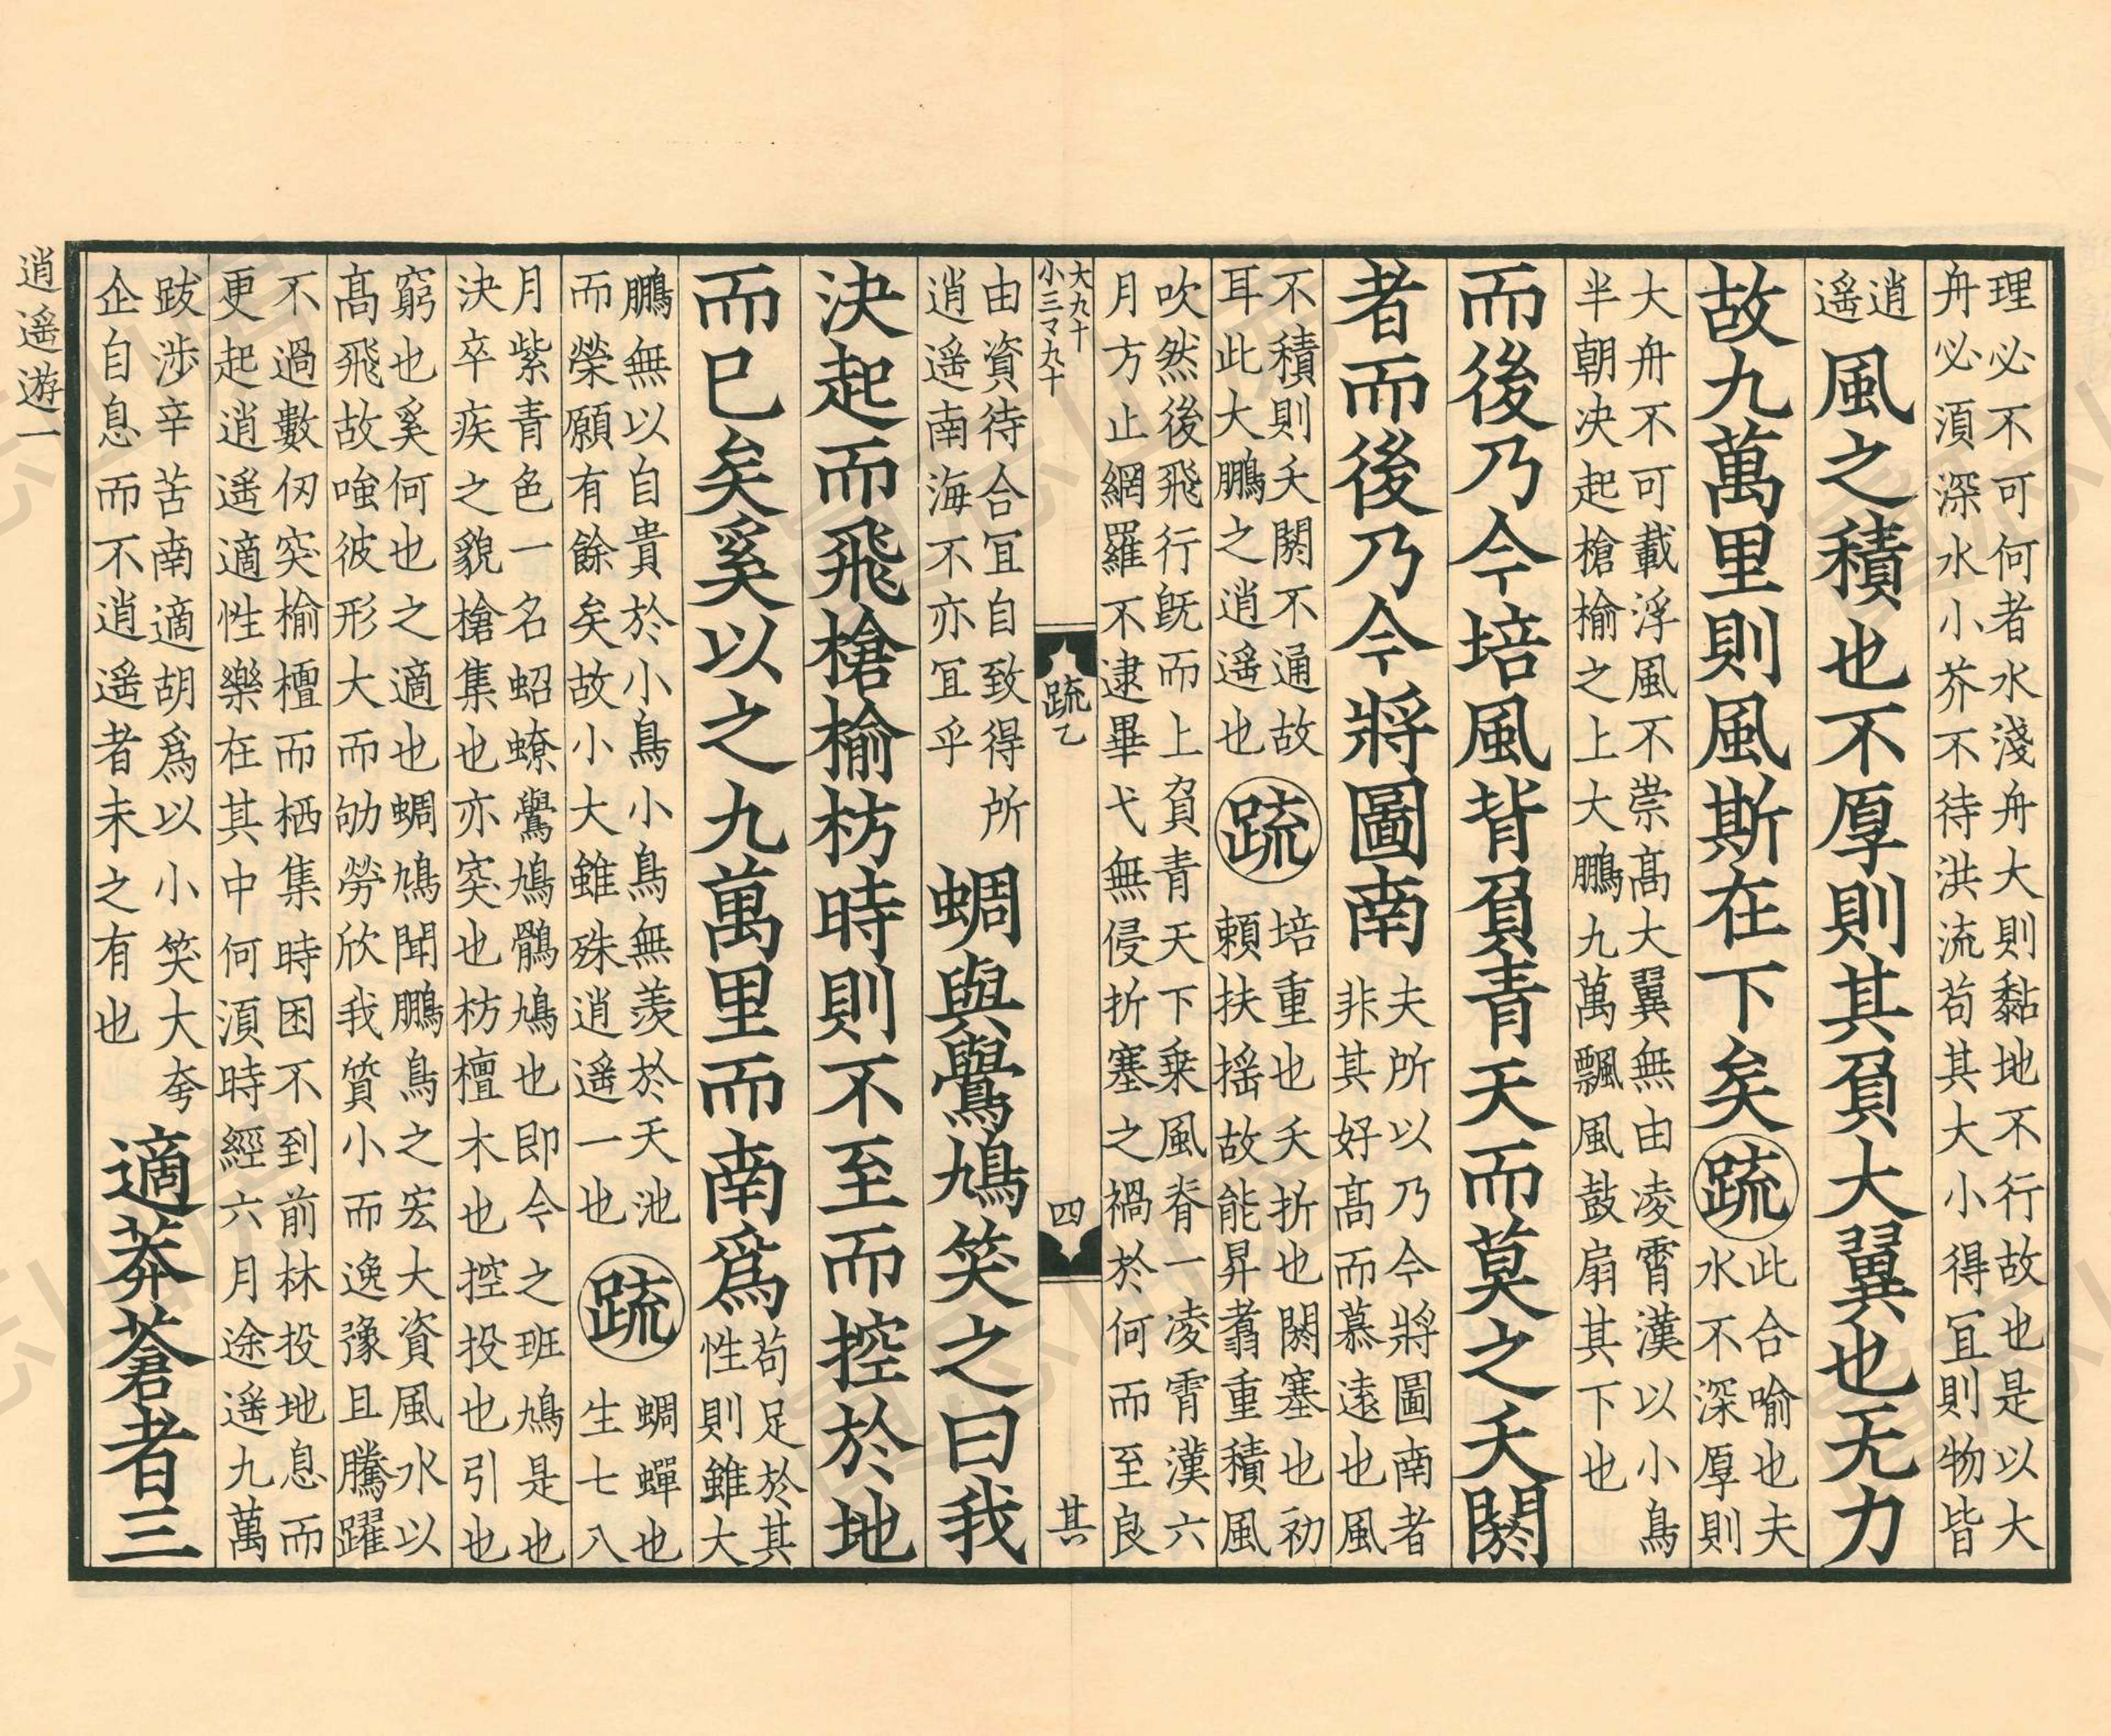 理必不可何者水淺舟大則黏地不行故也是以大
舟必湏深水小芥不待洪流苟其大小得冝則物皆
逍
遥
風之積也不厚則其負大翼也无力
故九萬里則風斯在下矣
疏
此合喻也夫
水不深厚則
大舟不可載浮風不崇髙大翼無由凌霄漢以小鳥
半朝决起槍榆之上大鵬九萬飄風鼓扇其下也
而後乃今培風背負青天而莫之夭閼
者而後乃今將圖南
夫所以乃今將圖南者
非其好髙而慕遠也風
不積則夭閼不通故
耳此大鵬之逍遥也
疏
培重也夭折也閼塞也初
頼扶揺故能昇翥重積風
吹然後飛行旣而上負青天下乗風脊一凌霄漢六
月方止網羅不逮畢弋無侵折塞之禍於何而至良
大九十
小三マ九十
疏乙
四
其
由資待合冝自致得所
逍遥南海不亦冝乎
蜩與鷽鳩笑之曰我
決起而飛槍榆枋時則不至而控於地
而已矣奚以之九萬里而南爲
苟足於其
性則雖大
鵬無以自貴於小鳥小鳥無羨於天池
而榮願有餘矣故小大雖殊逍遥一也
疏
蜩蟬也
生七八
月紫青色一名蛁蟟鷽鳩鶻鳩也即今之班鳩是也
決卒疾之貌槍集也亦突也枋檀木也控投也引也
窮也奚何也之適也蜩鳩聞鵬鳥之宏大資風水以
髙飛故嗤彼形大而劬勞欣我質小而逸豫且騰躍
不過數仞突榆檀而栖集時困不到前林投地息而
更起逍遥適性樂在其中何湏時經六月途遥九萬
跋涉辛苦南適胡爲以小笑大夸
企自息而不逍遥者未之有也
適莽蒼者三
逍遥遊一